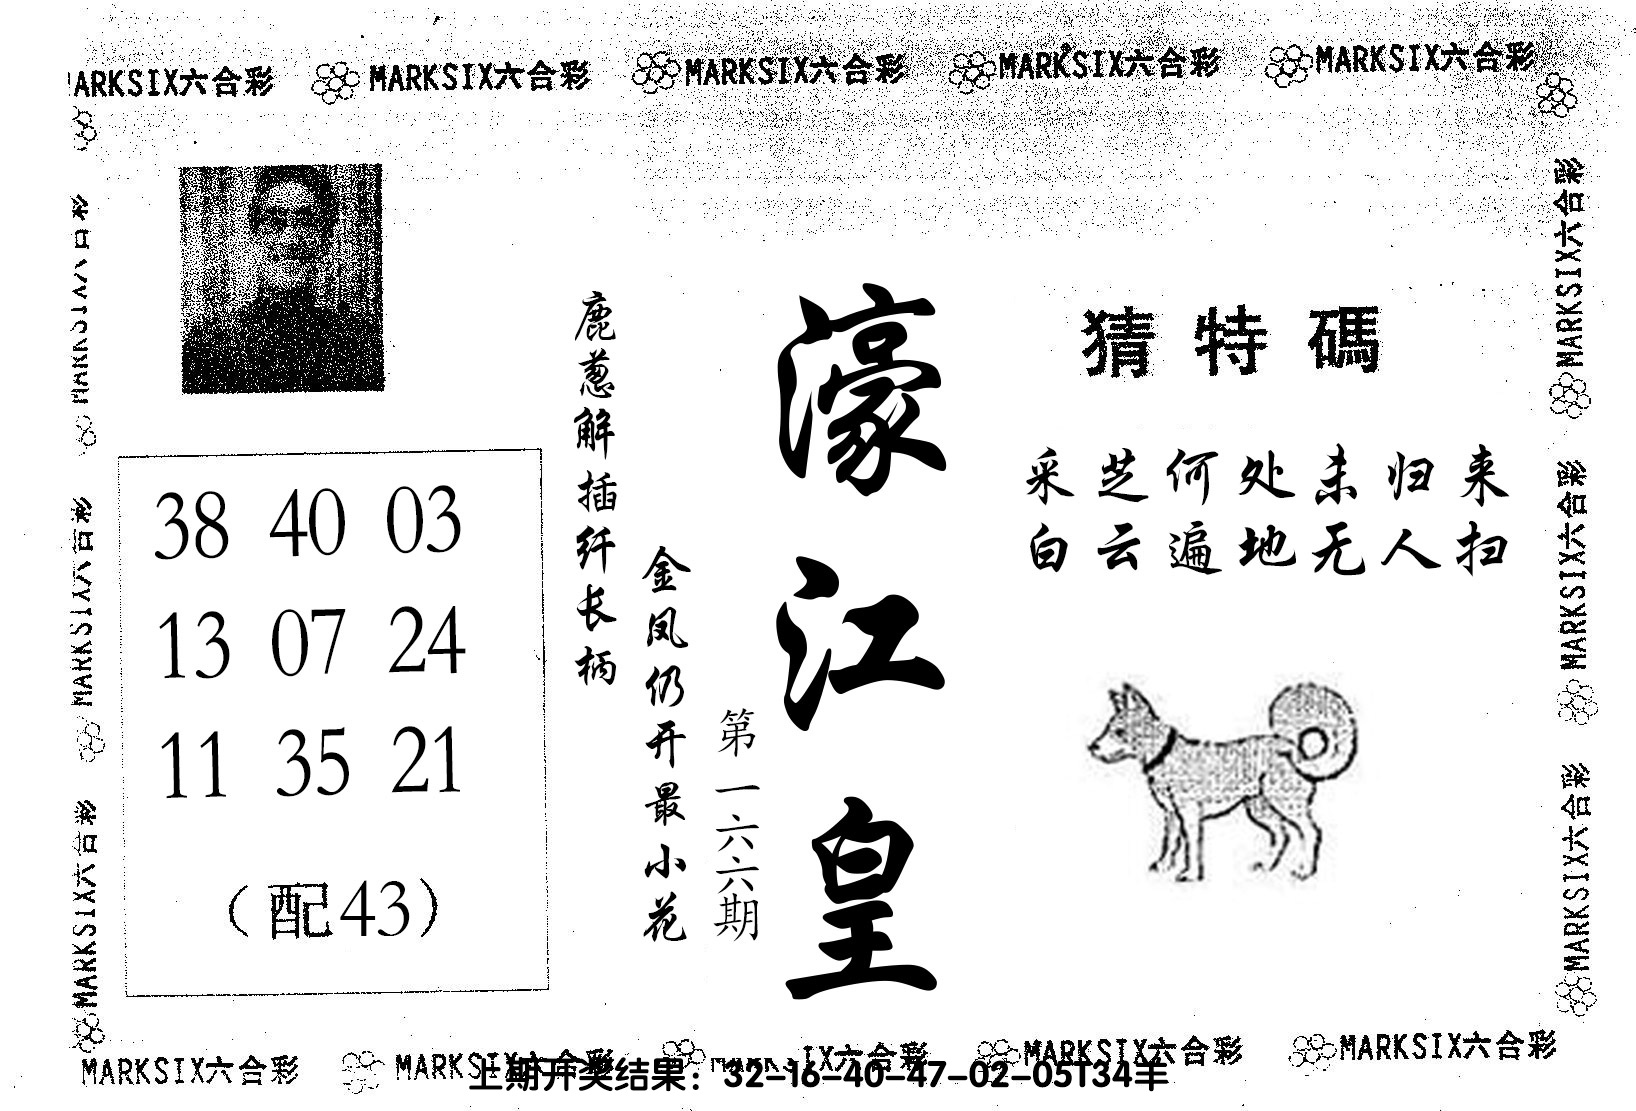 MARKSIX六合彩 MARKSIX六合彩 MARKSIX六合彩 MARKSIX六合彩 MARKSIX六合彩
MARKSIX六合彩
MARKSIX六合彩
MARKSIX六合彩
38 40 03
13 07 24
11 35 21
（配43）
鹿葱解插纤长柄
金凤仍开最小花
第一六六期
濠江皇
猜特碼
采芝何处未归来
白云遍地无人扫
MARKSIX六合彩
MARKSIX六合彩
MARKSIX六合彩
MARKSIX六合彩 MARKSIX六合彩 MARKSIX六合彩 MARKSIX六合彩 MARKSIX六合彩
上期开奖结果：32-16-40-47-02-05T34羊